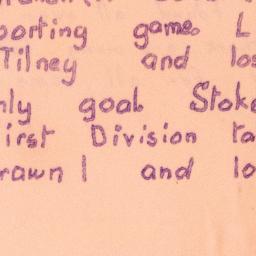 porting game. L
Tilney and los
nly goal Stoke
irst Division ta
rawn 1 and lo